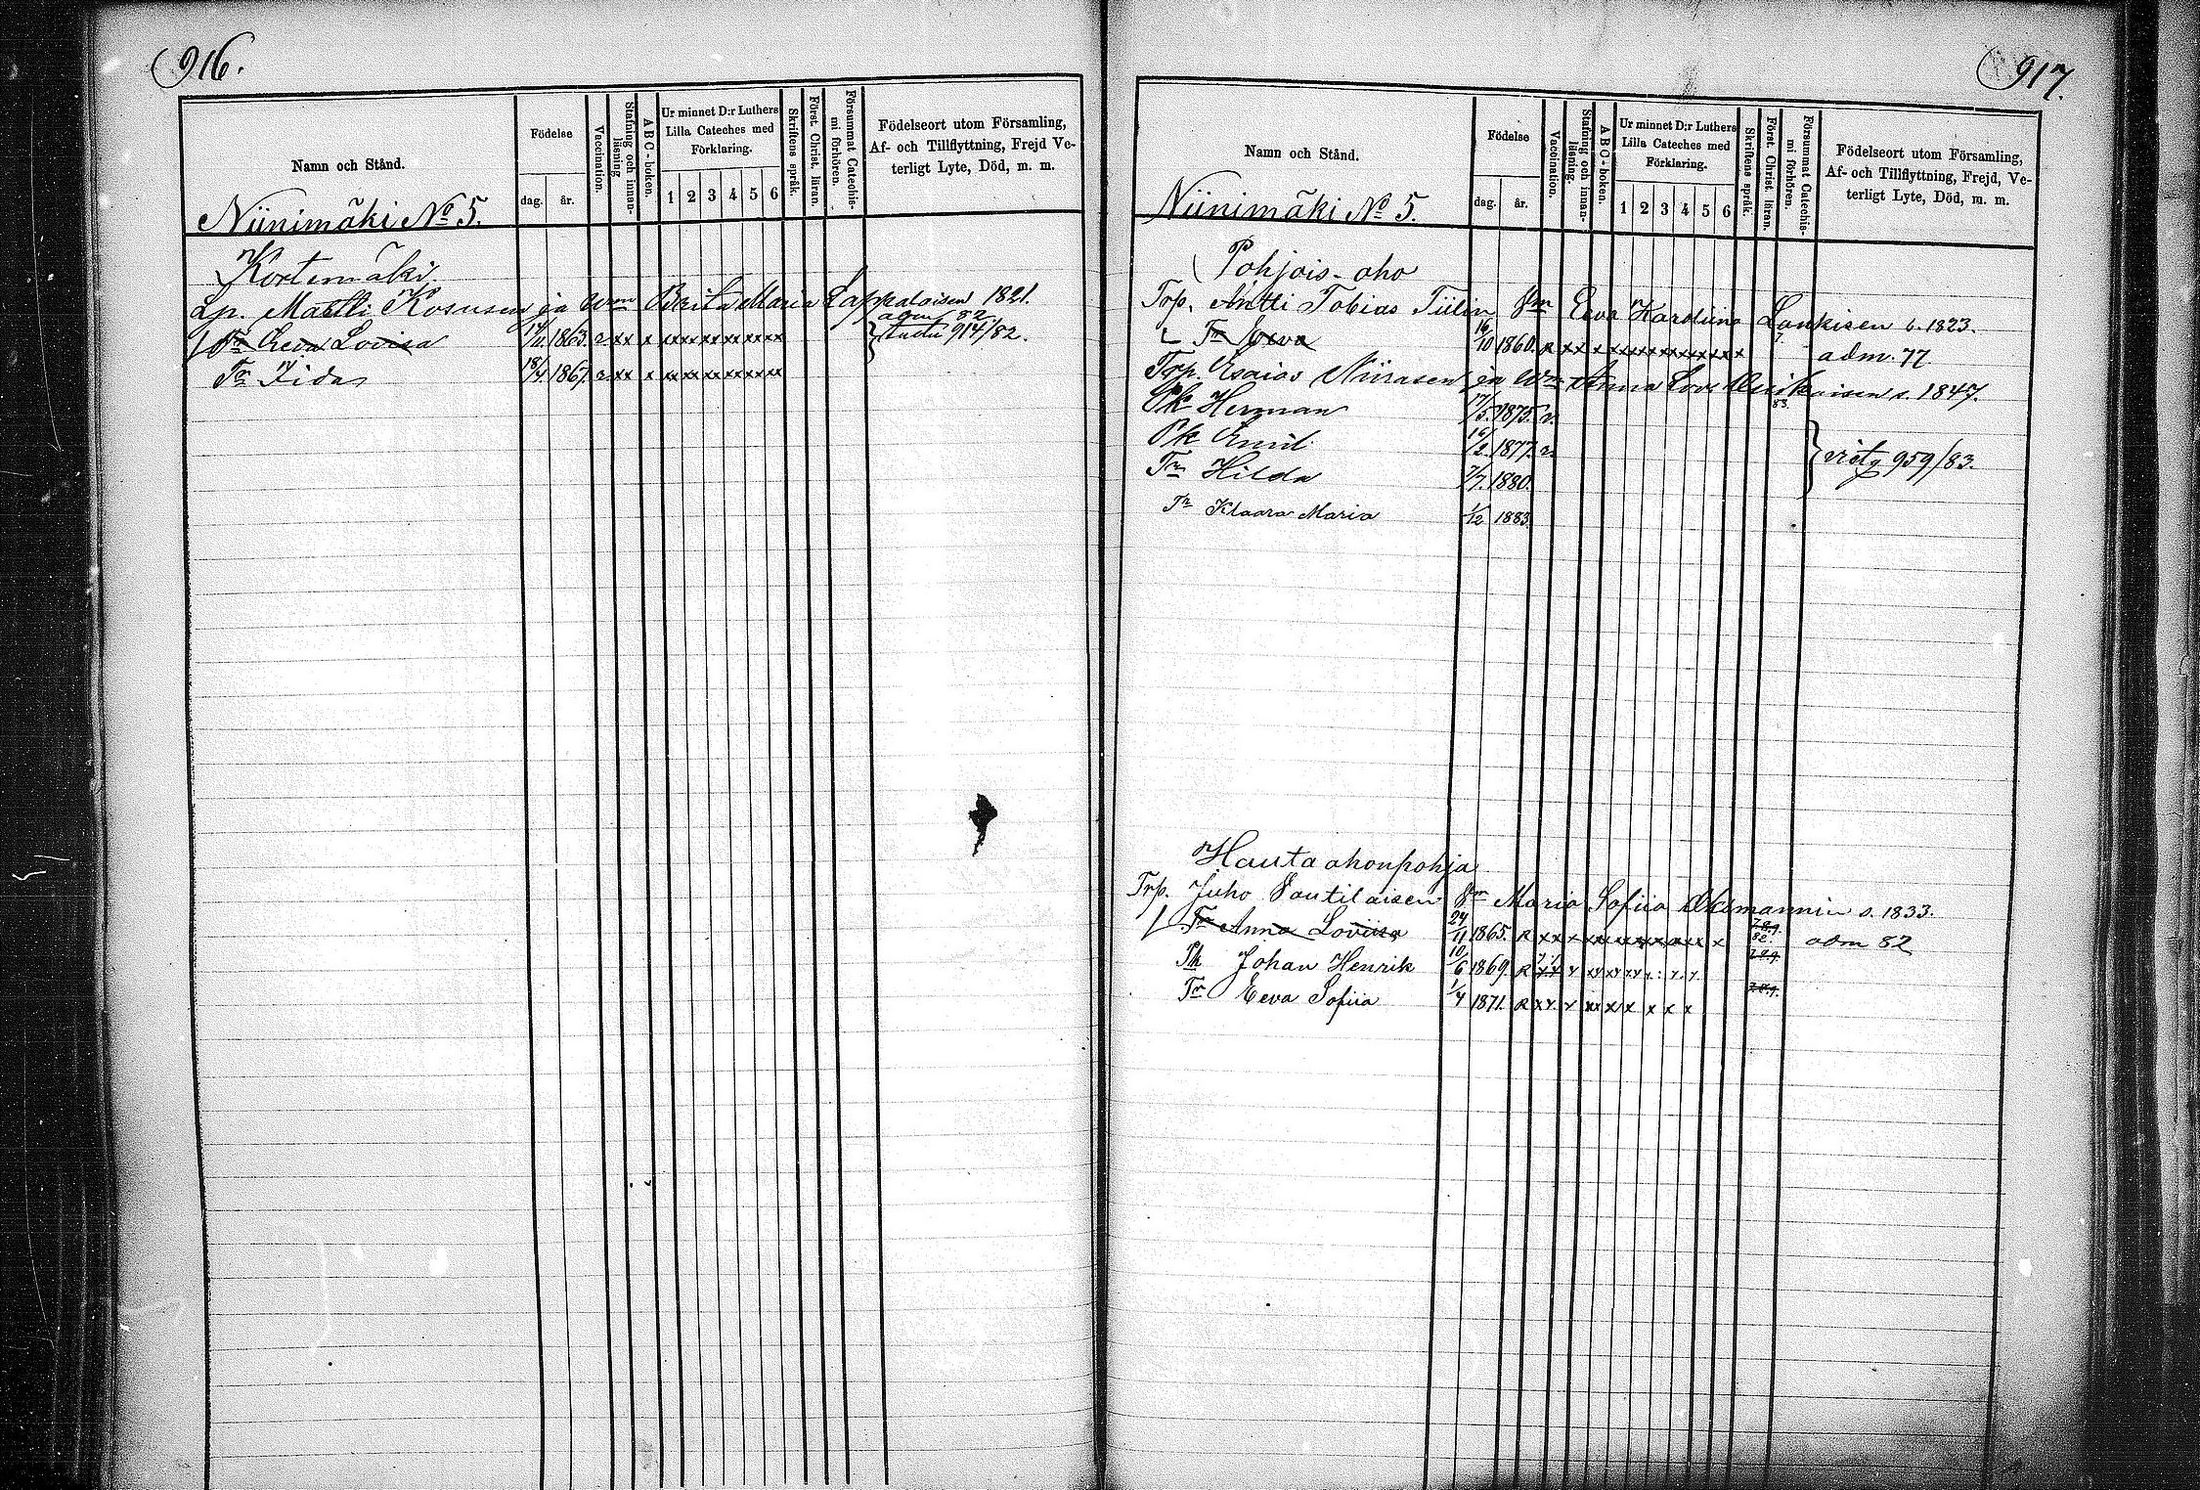 916.
Namn och Stånd.
Födelse
dag.
år.
Vaccination.
Stafning och innan-läsning
ABC-boken.
Ur minnet D:r Luthers
Lilla Cateches med
Förklaring.
1 2 3 4 5 6
Skriftens språk.
Först. Christ. läran.
Försummat Catechis-
mi förhören.
Födelseort utom Församling,
Af- och Tillflyttning, Frejd Ve-
terligt Lyte, Död, m. m.
Niinimäki No 5.
Kortemäki
Lp. Matti Kosusen ja Wm Brita Maria Lappalaisen 1821.
adm 82
Tr Eeva Lovisa 14/11 1863. 914/82.
Tr Iida 18/4 1867.
917.
Namn och Stånd.
Födelse
dag.
år.
Vaccination.
Stafning och innan-
läsning.
ABC-boken.
Ur minnet D:r Luthers
Lilla Cateches med
Förklaring.
1 2 3 4 5 6
Skriftens språk.
Först. Christ. läran.
Försummat Catechis-
mi förhören.
Födelseort utom Församling,
Af- och Tillflyttning, Frejd, Ve-
terligt Lyte, Död, m. m.
Niinimäki No 5.
Pohjois-aho
Trp. Antti Tobias Tiilin Vm Eeva Karoliina Lankisen s. 1823.
Tr Eeva 16/10 1860. R xx x adm. 77
Trp. Esaias Niirasen ja Wm Anna Lov. s. 1847.
83.
Pk Herman 17/5 1875. v.
Pk Emil 16/2 1877. v.
Tr Hilda 7/7. 1880. 959/83.
Tr Klaara Maria 1/12 1883.
Hautaahonpohja
Trp. Juho Vautilaisen Vm Maria Sofiia Ekmannin s. 1833.
Tr Anna Loviisa 24/11 1865. R xx x 7.8.9. 82. adm 82
Pk Johan Henrik 10/6 1869. R 7.8.9.
Tr Eeva Sofiia 1/4 1871. R 7.8.9.